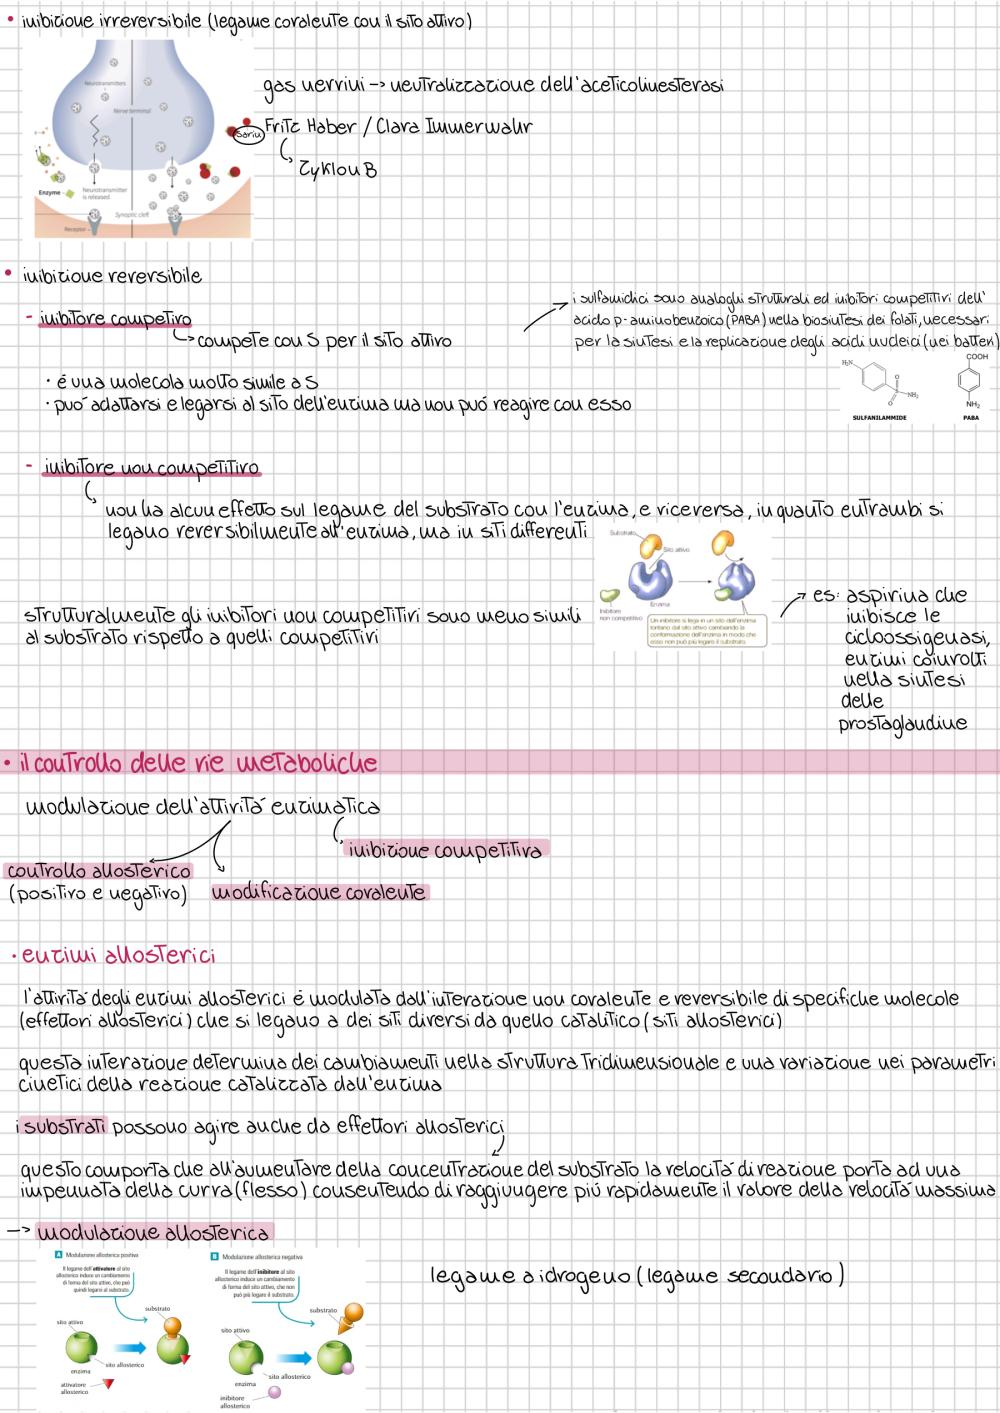 • inibizione irreversibile (legame covalente con il sito attivo)
Neurotransmitters
Nerve terminal
Enzyme
Neurotransmitter
is released
Synaptic cleft
Receptor
gas nervini -> neutralizzazione dell'aceticolinesterasi
Sarin
Fritz Haber / Clara Immerwahr
Zyklon B
• inibizione reversibile
- inibitore competivo
-> compete con S per il sito attivo
i sulfamidici sono analoghi strutturali ed inibitori competitivi dell'
acido p-aminobenzoico (PABA) nella biosintesi dei folati, necessari
per la sintesi e la replicazione degli acidi nucleici (nei batteri)
H₂N
O
S
O
NH₂
SULFANILAMMIDE
COOH
NH₂
PABA
· é una molecola molto simile a S
· puó adattarsi e legarsi al sito dell'enzima ma non puó reagire con esso
- inibitore non competitivo
non ha alcun effetto sul legame del substrato con l'enzima, e viceversa, in quanto entrambi si
legano reversibilmente all'enzima, ma in siti differenti
Substrato
Sito attivo
Enzima
Inibitore
non competitivo
Un inibitore si lega in un sito dell'enzima
lontano dal sito attivo cambiando la
conformazione dell'enzima in modo che
esso non può più legare il substrato.
strutturalmente gli inibitori non competitivi sono meno simili
al substrato rispetto a quelli competitivi
es: aspirina che
inibisce le
cicloossigenasi,
enzimi coinvolti
nella sintesi
delle
prostaglandine
• il controllo delle vie metaboliche
modulazione dell'attivitá enzimatica
inibizione competitiva
controllo allosterico
(positivo e negativo)
modificazione covalente
· enzimi allosterici
l'attivitá degli enzimi allosterici é modulata dall'interazione non covalente e reversibile di specifiche molecole
(effettori allosterici) che si legano a dei siti diversi da quello catalitico (siti allosterici)
questa interazione determina dei cambiamenti nella struttura tridimensionale e una variazione nei parametri
cinetici della reazione catalizzata dall'enzima
i substrati possono agire anche da effettori allosterici
questo comporta che all'aumentare della concentrazione del substrato la velocitá di reazione porta ad una
impennata della curva (flesso) consentendo di raggiungere piú rapidamente il valore della velocitá massima
-> modulazione allosterica
A Modulazione allosterica positiva
Il legame dell'attivatore al sito
allosterico induce un cambiamento
di forma del sito attivo, che può
quindi legarsi al substrato.
substrato
sito attivo
sito allosterico
enzima
attivatore
allosterico
B Modulazione allosterica negativa
Il legame dell'inibitore al sito
allosterico induce un cambiamento
di forma del sito attivo, che non
può più legare il substrato.
substrato
sito attivo
sito allosterico
enzima
inibitore
allosterico
legame a idrogeno (legame secondario)